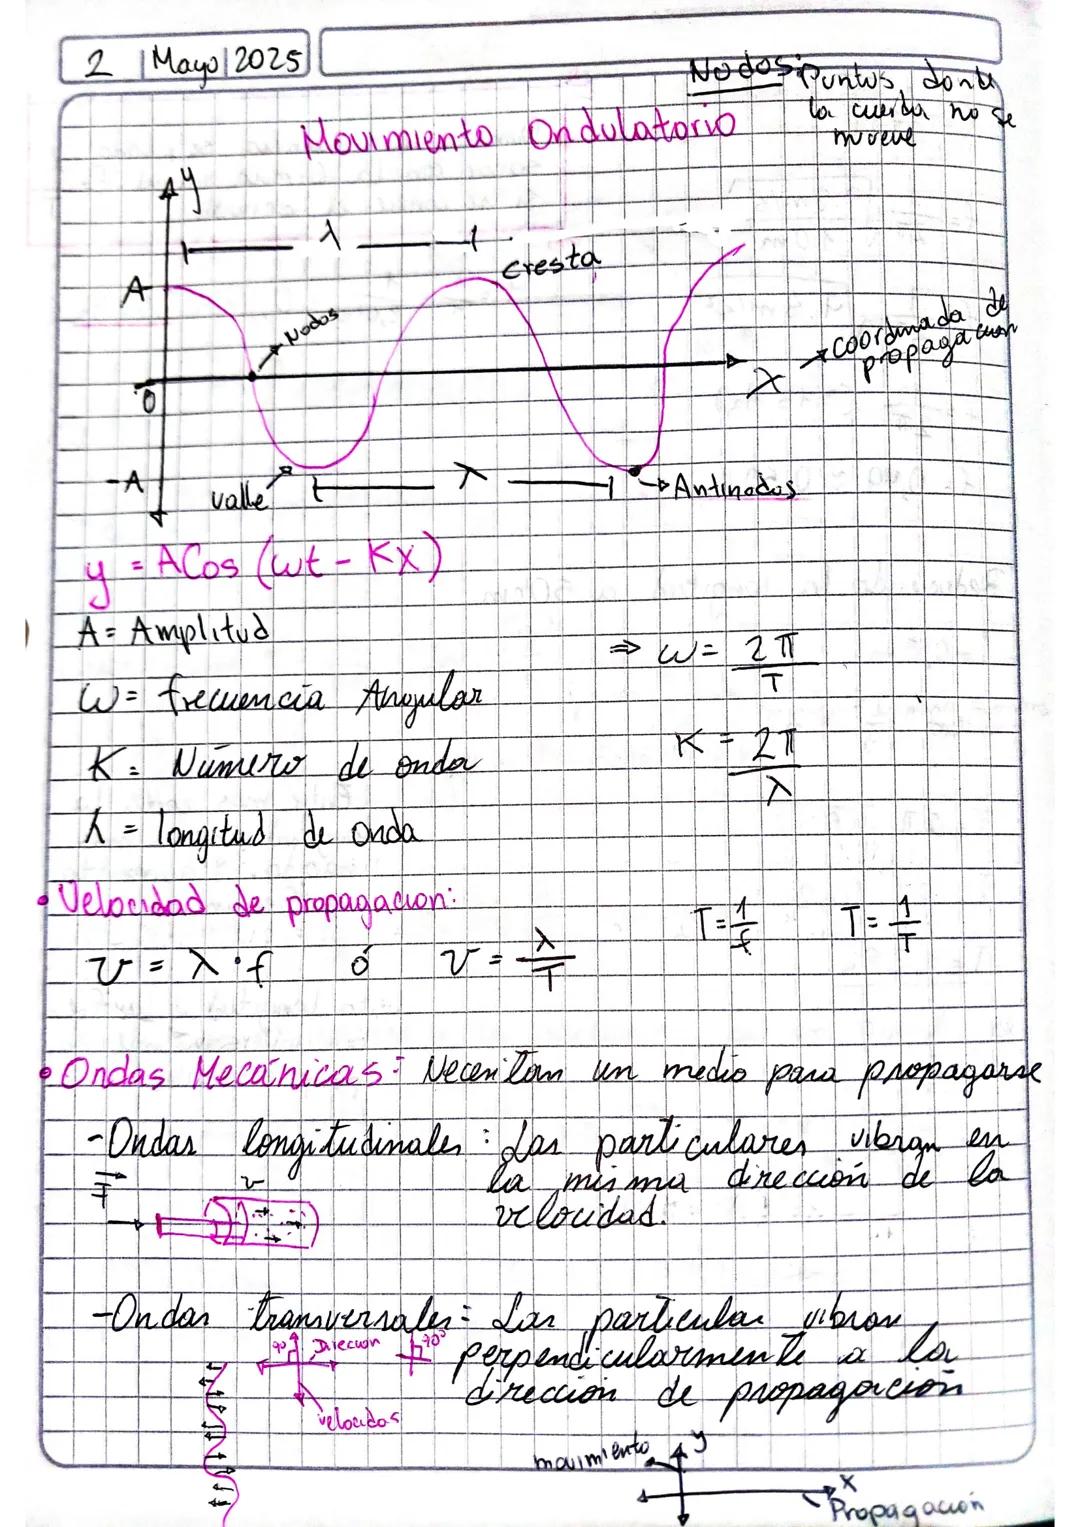 2 | Mayo | 2025
Nodos: Puntos donde
la cuerda no se
mueve
Movimiento Ondulatorio
y
λ
cresta
A
Nodos
coordinada de
propagacion
x
0
-A
valle
λ
Antinodos
y = ACos (ωt - Kx)
A = Amplitud
⇒ ω = 2π/T
ω = frecuencia Angular
K = 2π/λ
K = Número de onda
λ = longitud de onda
• Velocidad de propagacion:
v = λ · f ó v = λ/T
T = 1/f T = 1/T
• Ondas Mecánicas: Necesitan un medio para propagarse
- Ondas longitudinales: Las particulares vibran en
la misma dirección de la
velocidad.
F
v
- Ondas transversales: Las particulas vibran
perpendicularmente a la
dirección de propagación
90° Direccion 90°
velocidos
movimiento
y
x
Propagación